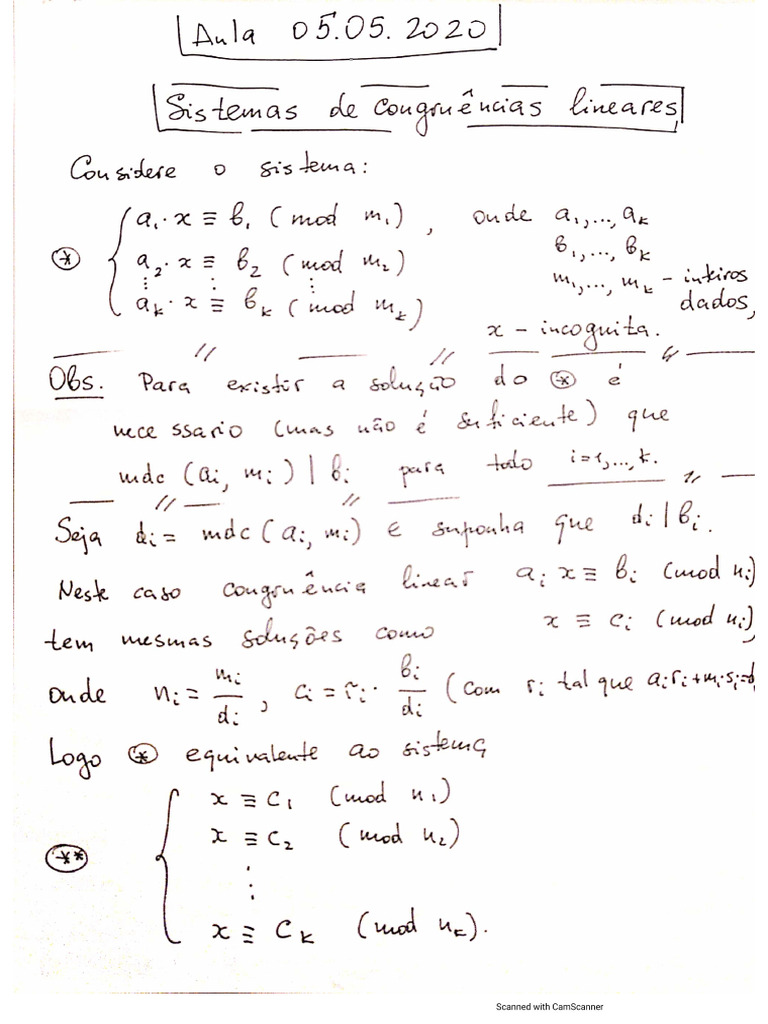 Aula 05.05.2020
Sistemas de congruências lineares
Considere o sistema:
a₁·x ≡ b₁ (mod m₁), onde a₁,...,aₖ
⊛ a₂·x ≡ b₂ (mod m₂) b₁,...,bₖ
⋮ ⋮ ⋮ m₁,...,mₖ - inteiros
aₖ·x ≡ bₖ (mod mₖ) dados,
x - incognita.
Obs. Para existir a solução do ⊛ é
necessario (mas não é suficiente) que
mdc (aᵢ, mᵢ) | bᵢ para todo i=1,...,k.
Seja dᵢ = mdc (aᵢ, mᵢ) e suponha que dᵢ | bᵢ.
Neste caso congruência linear aᵢ x ≡ bᵢ (mod nᵢ)
tem mesmas soluções como x ≡ cᵢ (mod nᵢ),
onde nᵢ = mᵢ/dᵢ, cᵢ = rᵢ · bᵢ/dᵢ (com rᵢ tal que aᵢrᵢ+mᵢsᵢ=d
Logo ⊛ equivalente ao sistema
x ≡ c₁ (mod n₁)
(**) x ≡ c₂ (mod n₂)
⋮
x ≡ cₖ (mod nₖ).
Scanned with CamScanner